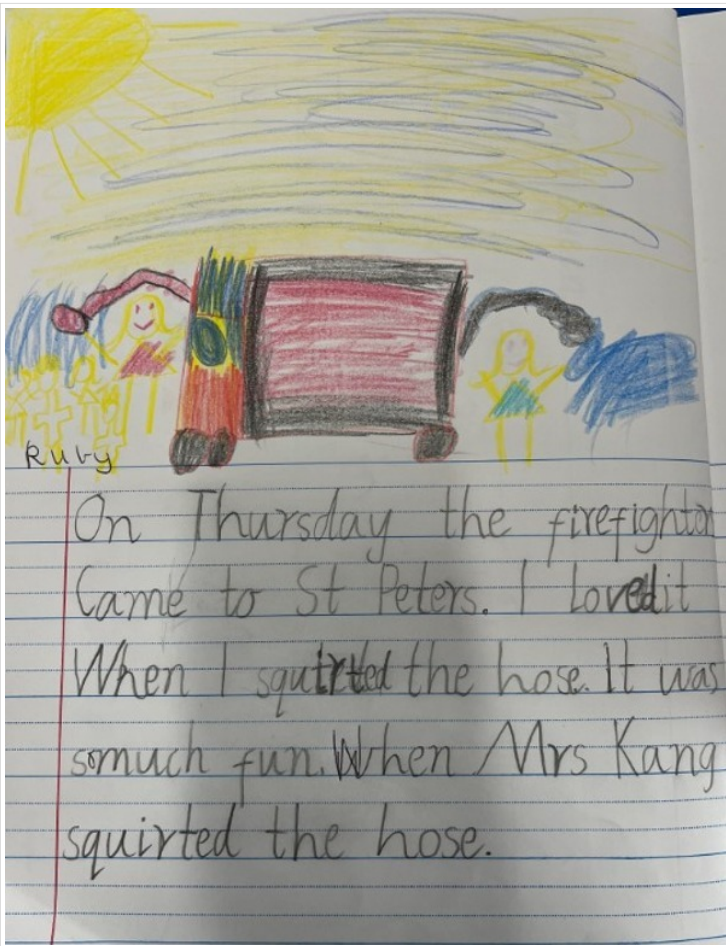 Ruby
On Thursday the firefighter
Came to St Peters. I Loved it
When I squirted the hose. It was
somuch fun. When Mrs Kang
squirted the hose.